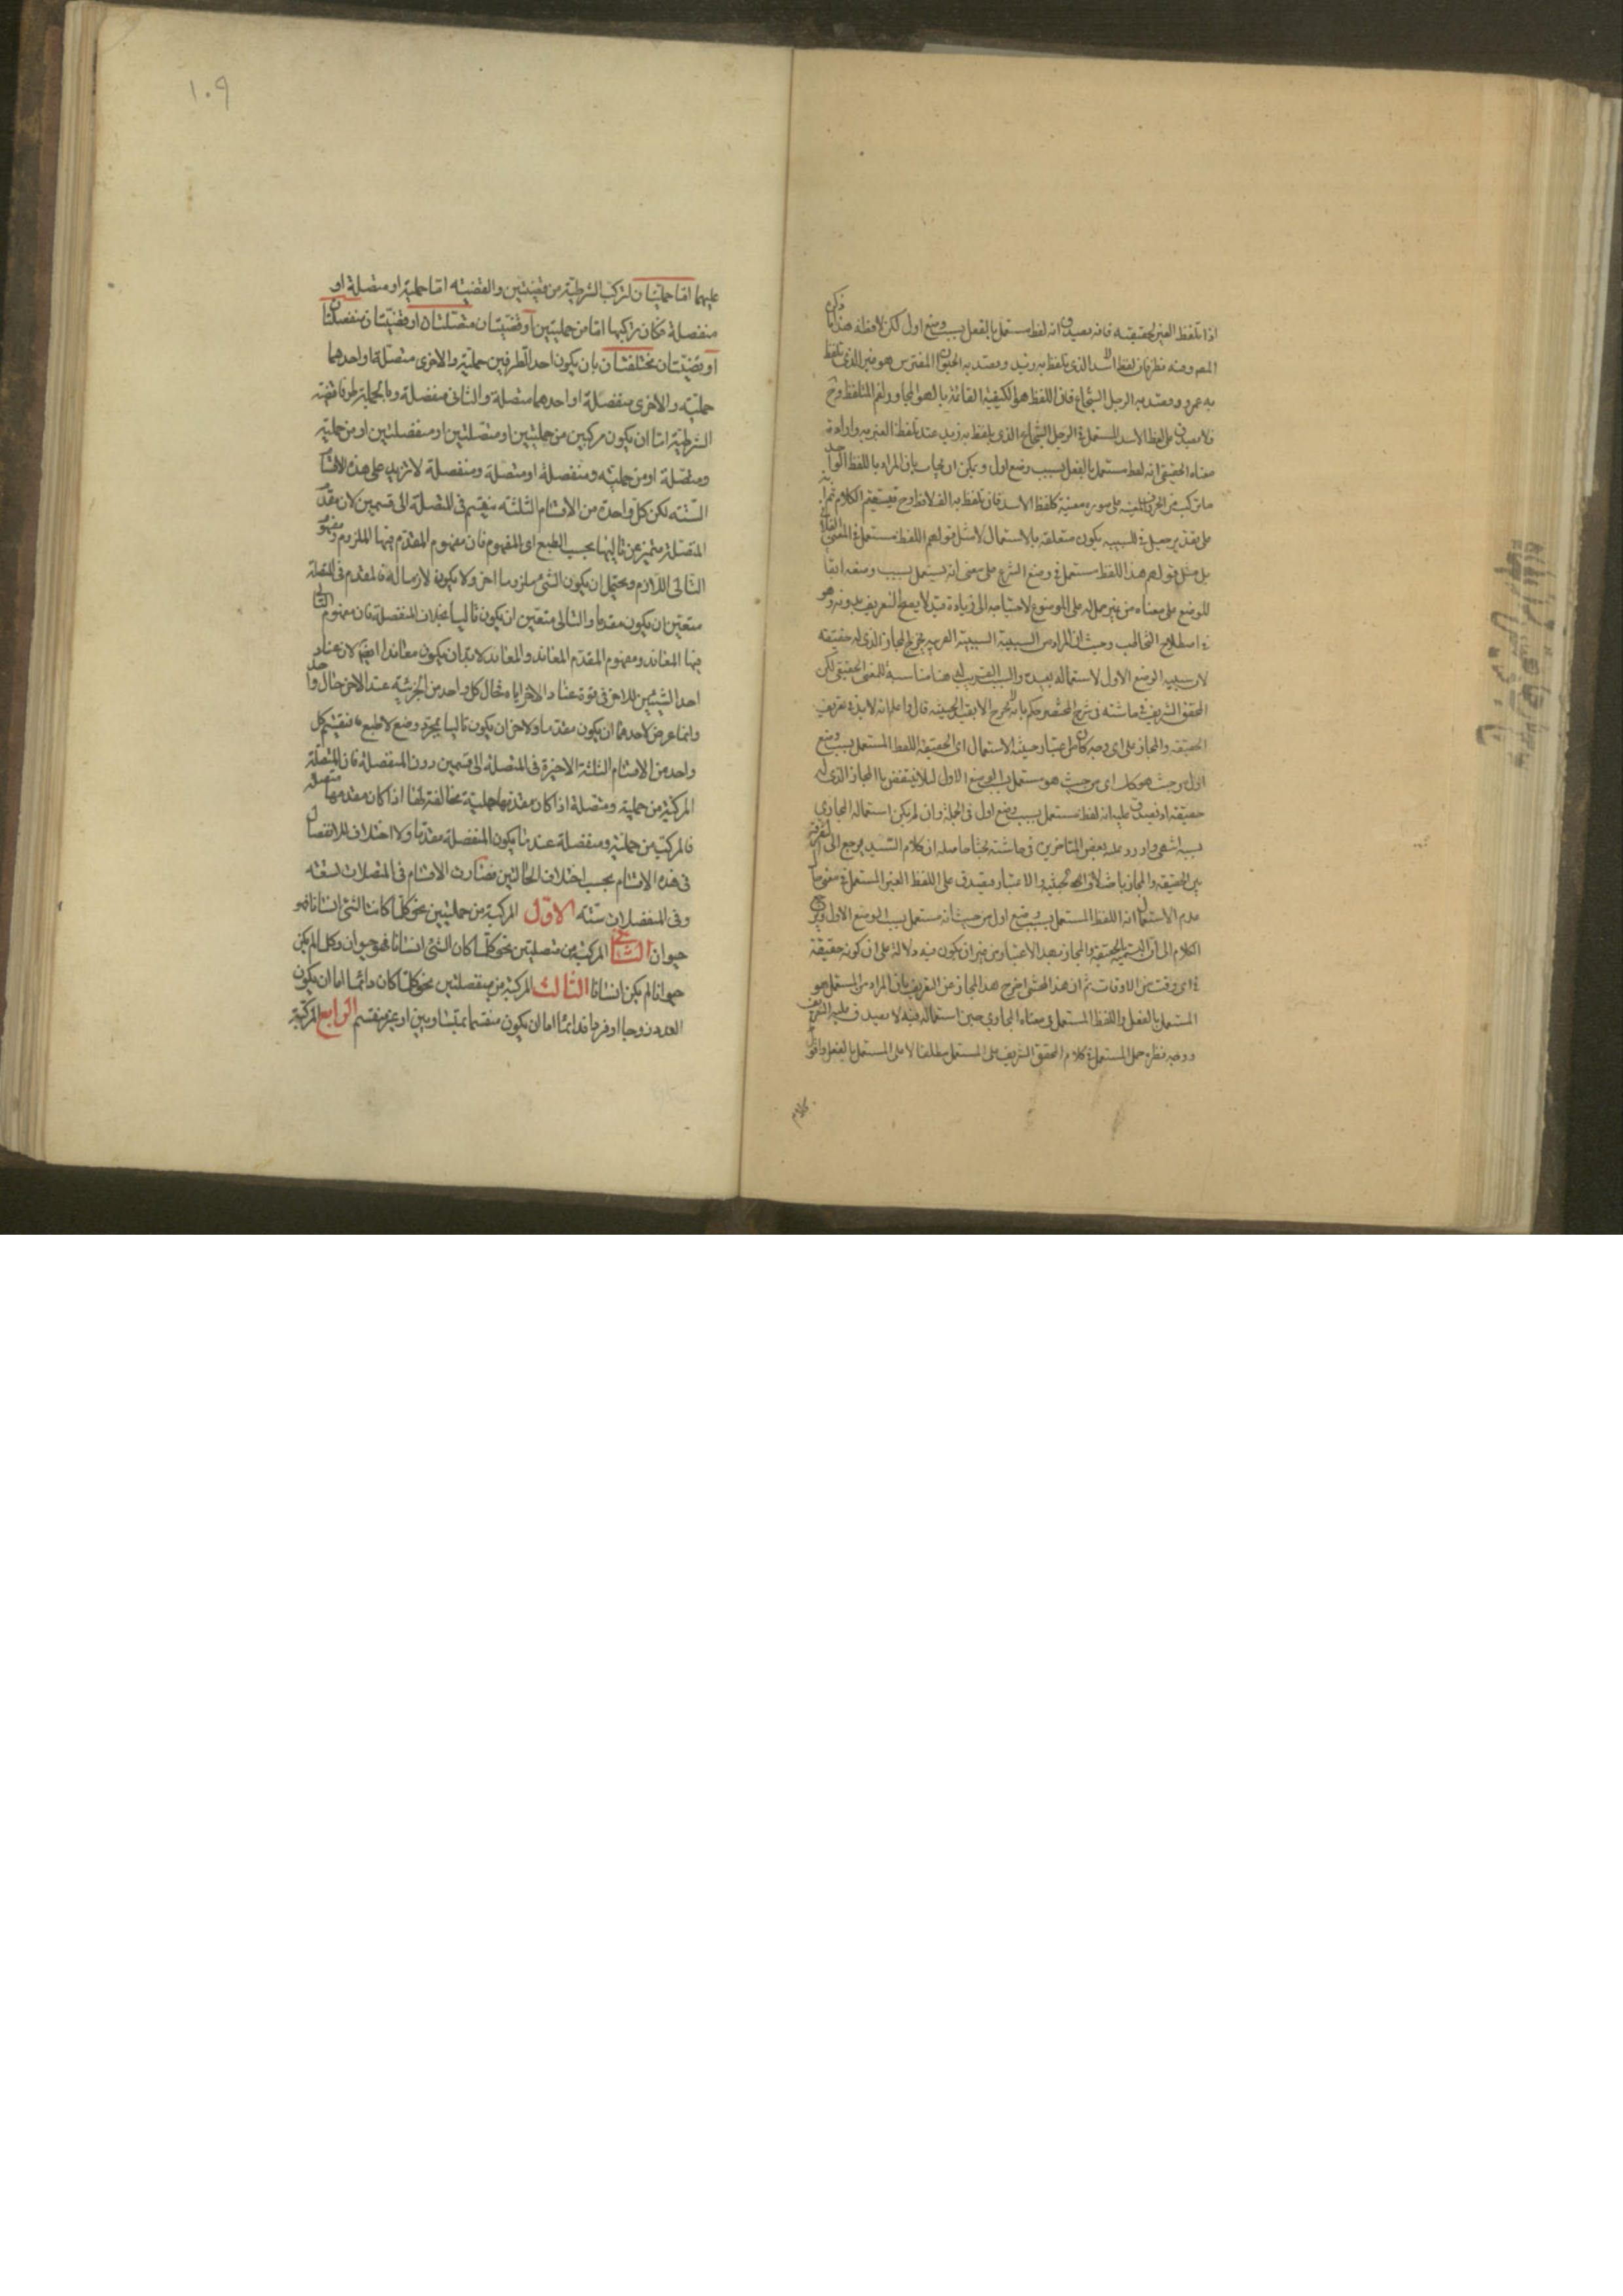 اذا تلفظ الغير لحقيقته فانه يصدق انه لفظ مستعمل بالفعل بسبب وضع اول لكن لافظه هذا ما ذكره
المص وفيه نظر فان لفظ الاسد الذى يلفظ به زيد ويقصد به الحيوان المفترس هو غير الذى تلفظ
به عمرو ويقصد به الرجل الشجاع فان اللفظ هو الكيفية القائمة بالهواء المجاور لفم المتلفظ وح
فلا يصدق على لفظ الاسد المستعمل فى الرجل الشجاع الذى يلفظ به زيد عند تلفظ الغير به وارادة
معناه الحقيقى انه لفظ مستعمل بالفعل بسبب وضع اول ويمكن ان يجاب بان المراد باللفظ الواحد
ما تركب من الحروف المعينة على صورة معينة كلفظ الاسد فان تلفظ به الف لافظ وح فيستقيم الكلام ثم انه
على تقدير جعل فى للسببية يكون متعلقة بالاستعمال لا مثل قولهم اللفظ مستعمل فى المعنى الفلانى
بل مثل قولهم هذا اللفظ مستعمل فى وضع الشرع على معنى انه يستعمل بسبب وضعه ابقاء
للوضع على معناه من غير حمله على الموضوع لاحتياجه الى زيادة قيد لا يصح التعريف بدونه وهو
فى اصطلاح التخاطب وحيث ان المراد من السببية السببية القريبة يخرج المجاز الذى له حقيقة
لان سببية الوضع الاول لاستعماله بعيدة والسبب القريب له هنا مناسبة للمعنى الحقيقى لكن
المحقق الشريف فى حاشيته فى شرح المختصر حكم بانه لا يخرج الا بقيد الحيثية قال واعلم انه لابد فى تعريف
الحقيقة والمجاز على اى وجه كان من اعتبار حيثية الاستعمال اى الحقيقة اللفظ المستعمل بسبب وضع
اول من حيث هو كك اى من حيث هو مستعمل بسبب الوضع الاول لئلا ينتقض بالمجاز الذى له
حقيقة اذ يصدق عليه انه لفظ مستعمل بسبب وضع اول فى الجملة وان لم يكن استعماله المجازى
بسببه انتهى واورد عليه بعض المتاخرين فى حاشيته بحثا حاصله ان كلام السيد يرجع الى التفرقة
بين الحقيقة والمجاز باختلاف الحيثية والاعتبار فيصدق على اللفظ الغير المستعمل فى معنى حال
عدم الاستعمال انه اللفظ المستعمل بسبب وضع اول من حيث انه مستعمل بسبب الوضع الاول ويرجع
الكلام الى ان التسمية بالحقيقة والمجاز بهذا الاعتبار من غير ان يكون فيه دلالة على ان كونه حقيقة
فى اى وقت من الاوقات ثم ان هذا المحشى اخرج هذا المجاز عن التعريف بان المراد من المستعمل هو
المستعمل بالفعل واللفظ المستعمل فى معناه المجازى حين استعماله فيه لا يصدق عليه التعريف
ووجه نظره حمل المستعمل فى كلام المحقق الشريف على المستعمل مطلقا لا على المستعمل بالفعل واقول
كلام
١٠٩
عليهما اما حمليتان لتركب الشرطية من قضيتين والقضية اما حملية او متصلة او
منفصلة فكان تركيبها اما من حمليتين او قضيتان متصلتان او قضيتان منفصلتان
او قضيتان مختلفتان بان يكون احد الطرفين حملية والاخرى متصلة او احدهما
حملية والاخرى منفصلة او احدهما متصلة والثانى منفصلة وبالجملة طرفا قضية
الشرطية اما ان يكون مركبين من حمليتين او متصلتين او منفصلتين او من حملية
ومتصلة او من حملية ومنفصلة او متصلة ومنفصلة لا تزيد على هذه الاقسام
الستة لكن كل واحدة من الاقسام الثلثة ينقسم فى المتصلة الى قسمين لان مقدم
المتصلة متميز عن تاليها بحسب الطبع اى المفهوم فان مفهوم المقدم فيها الملزوم ومفهوم
التالى اللازم ويحتمل ان يكون الشئ ملزوما اخر ولا يكون لازما له فالمقدم فى المتصلة
متعين ان يكون مقدما والتالى متعين ان يكون تاليا بخلاف المنفصلة فان مفهوم التالى
فيها المعاند ومفهوم المقدم المعاند والمعاند لابد ان يكون معاندا ايضا لان عناد
احد الشيئين للاخر فى قوة عناد الاخر اياه فحال كل واحد من الجزئيه عند الاخر حال واحد
وانما عرض لاحدهما ان يكون مقدما ولاخر ان يكون تاليا بمجرد وضع لا طبع فينقسم كل
واحد من الاقسام الثلثة الاخيرة فى المتصلة الى قسمين دون المنفصلة فان المتصلة
المركبة من حملية ومتصلة اذا كان مقدمها حملية مخالفة لها اذا كان مقدمها متصلة
فالمركبة من حملية ومنفصلة عندنا يكون المنفصلة مقدما ولا اختلاف للانفصال
فى هذه الاقسام بحسب اختلاف الحالتين فصارت الاقسام فى المتصلات تسعة
وفى المنفصلات ستة الاول المركبة من حمليتين نحو كلما كان الشئ انسانا فهو
حيوان الثانى المركبة من متصلتين نحو كلما كان الشئ انسانا فهو حيوان وكل ما لم يكن
حيوانا لم يكن انسانا الثالث المركبة من منفصلتين نحو كلما كان دائما اما ان يكون
العدد زوجا او فردا فدائما اما ان يكون منقسما بمتساويين او غير منقسم الرابع المركبة